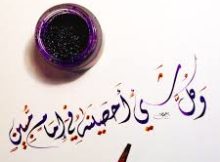 وَكُلَّ شَيْءٍ أَحْصَيْنَاهُ فِي إِمَامٍ مُّبِينٍ